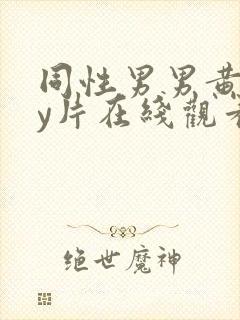 同性男男黄
y片在线觀看
绝世魔神